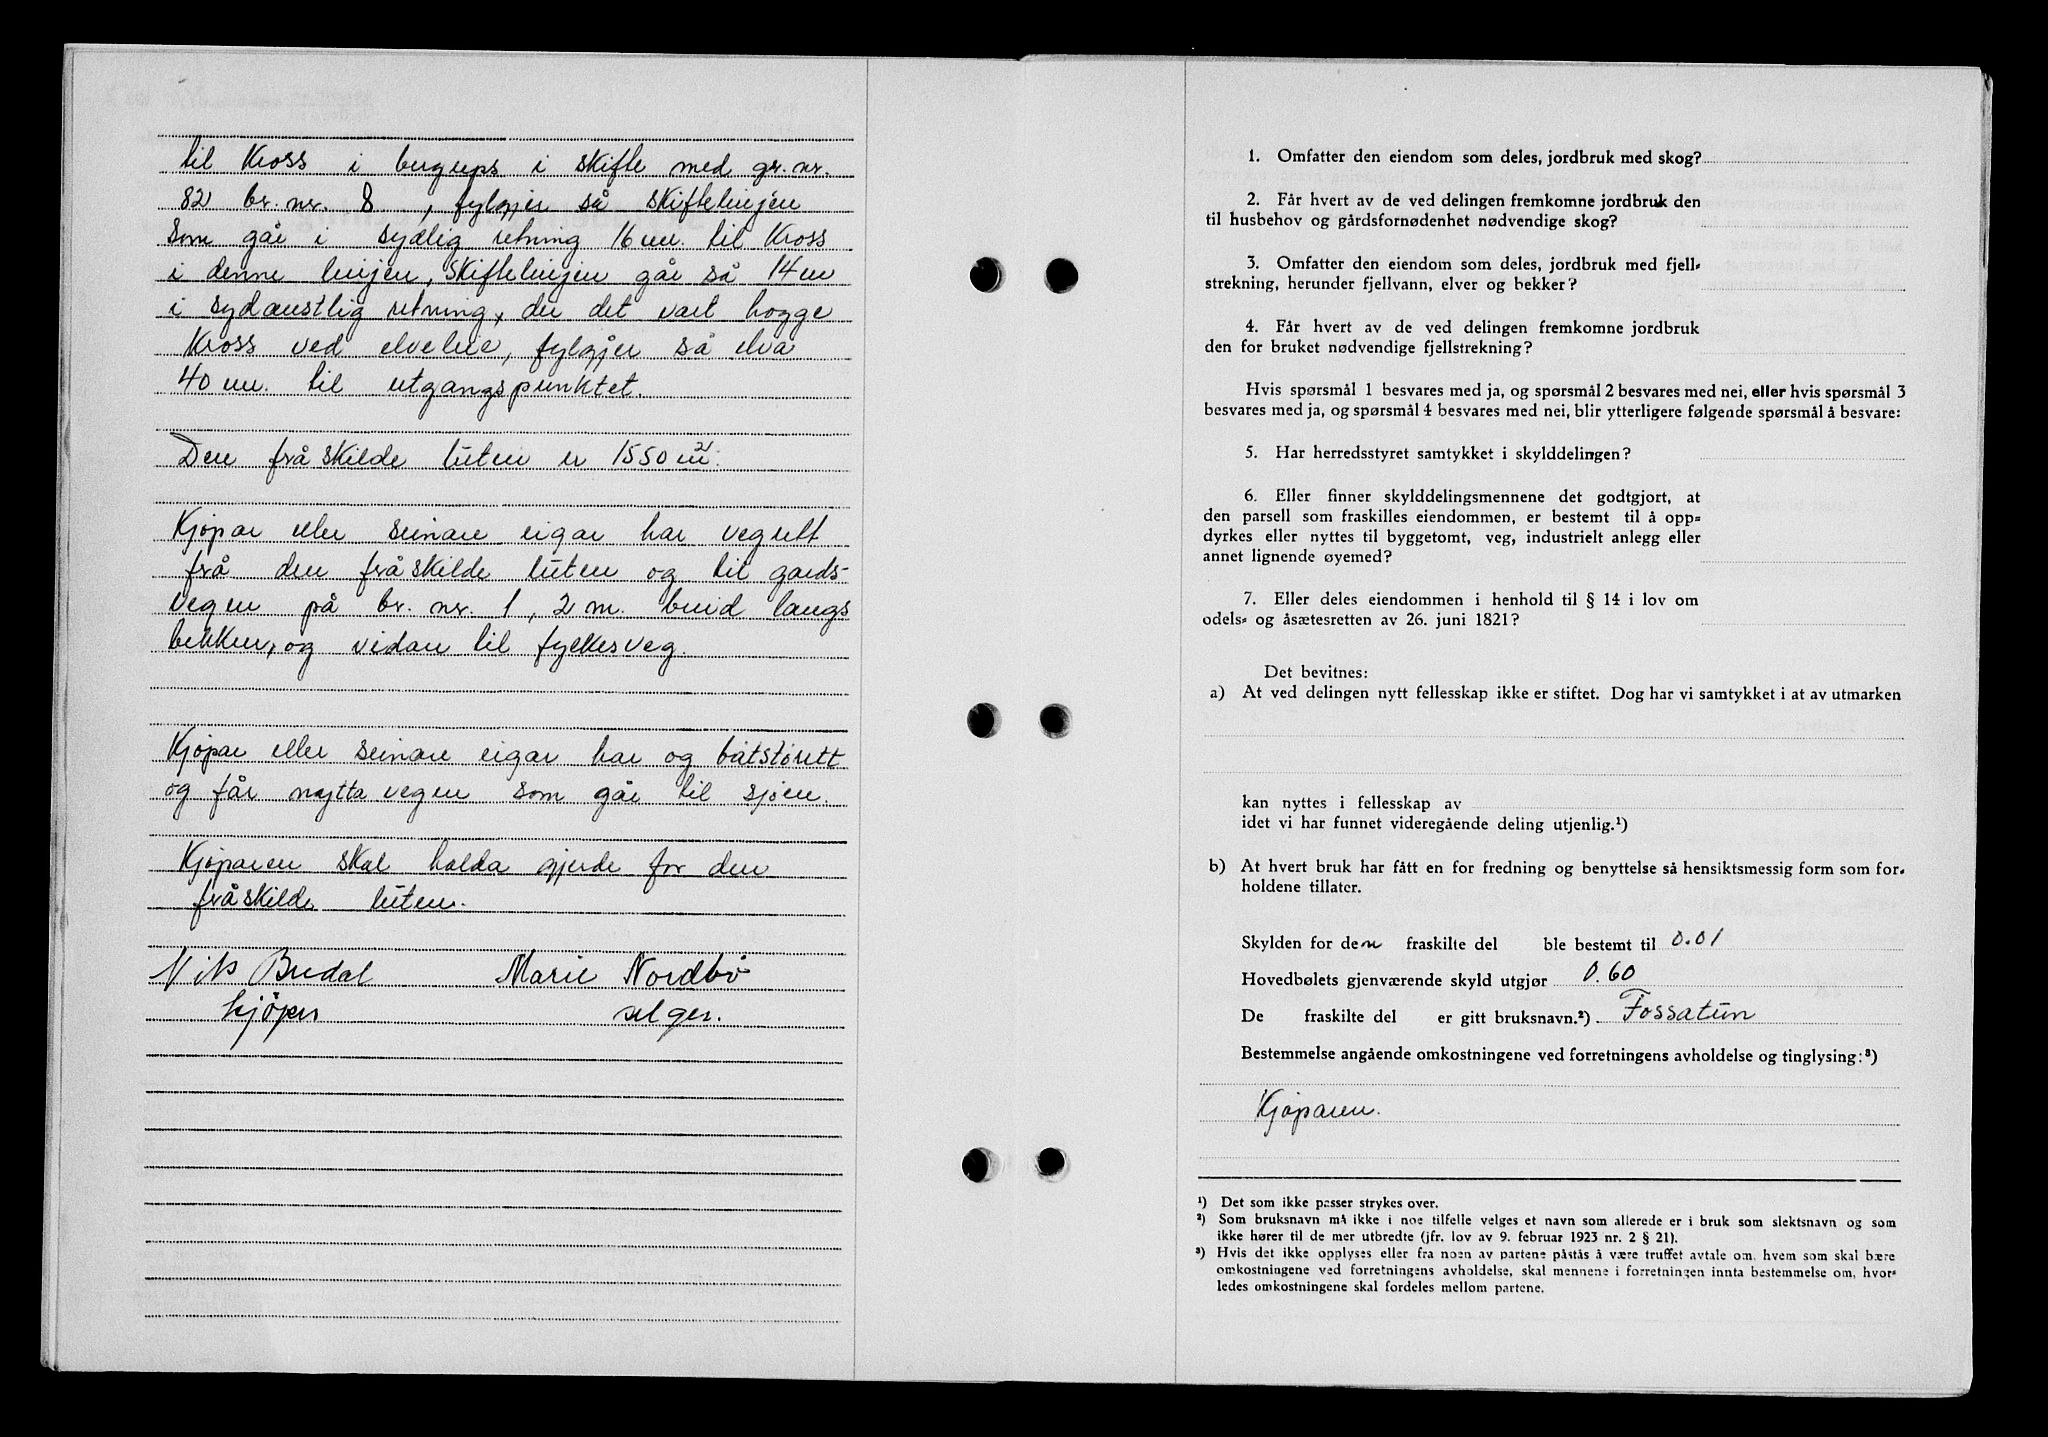 til Kross i bergnps i skifte med gr. nr.
82 br. nr. 8, fylgjer så skiftelinjen
som går i sydlig retning 16 m. til Kross
i denne linjen, skiftelinjen går så 14 m
i sydaustlig retning, der det vart hogge
Kross ved elvelue, fylgjer så elva
40 m. til utgangspunktet.
Den fråskilde luten er 1550 m².
Kjøpar eller seinare eigar har vegrett
frå den fråskilde luten og til gards-
vegen på br. nr. 1, 2 m. breid langs
bekken, og vidare til fylkesveg.
Kjøpar eller seinare eigar har og båtstørett
og får nøytta vegen som går til sjøen.
Kjøparen skal halda gjerde for den
fråskilde luten.
Nils Bredal Marie Nordbø
kjøper selger.
1. Omfatter den eiendom som deles, jordbruk med skog?
2. Får hvert av de ved delingen fremkomne jordbruk den
til husbehov og gårdsfornødenhet nødvendige skog?
3. Omfatter den eiendom som deles, jordbruk med fjell-
strekning, herunder fjellvann, elver og bekker?
4. Får hvert av de ved delingen fremkomne jordbruk
den for bruket nødvendige fjellstrekning?
Hvis spørsmål 1 besvares med ja, og spørsmål 2 besvares med nei, eller hvis spørsmål 3
besvares med ja, og spørsmål 4 besvares med nei, blir ytterligere følgende spørsmål å besvare:
5. Har herredsstyret samtykket i skylddelingen?
6. Eller finner skylddelingsmennene det godtgjort, at
den parsell som fraskilles eiendommen, er bestemt til å opp-
dyrkes eller nyttes til byggetomt, veg, industrielt anlegg eller
annet lignende øyemed?
7. Eller deles eiendommen i henhold til § 14 i lov om
odels- og åsætesretten av 26. juni 1821?
Det bevitnes:
a) At ved delingen nytt fellesskap ikke er stiftet. Dog har vi samtykket i at av utmarken
kan nyttes i fellesskap av
idet vi har funnet videregående deling utjenlig.¹)
b) At hvert bruk har fått en for fredning og benyttelse så hensiktsmessig form som for-
holdene tillater.
Skylden for den fraskilte del ble bestemt til 0.01
Hovedbølets gjenværende skyld utgjør 0.60
De fraskilte del er gitt bruksnavn.²) Fossatun
Bestemmelse angående omkostningene ved forretningens avholdelse og tinglysing:³)
Kjøparen.
¹) Det som ikke passer strykes over.
²) Som bruksnavn må ikke i noe tilfelle velges et navn som allerede er i bruk som slektsnavn og som
ikke hører til de mer utbredte (jfr. lov av 9. februar 1923 nr. 2 § 21).
³) Hvis det ikke opplyses eller fra noen av partene påstås å være truffet avtale om, hvem som skal bære
omkostningene ved forretningens avholdelse, skal mennene i forretningen innta bestemmelse om, hvor-
ledes omkostningene skal fordeles mellom partene.